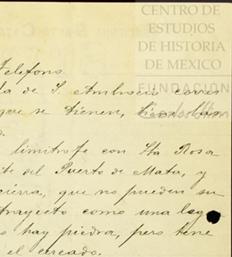 CENTRO DE
ESTUDIOS
DE HISTORIA
DE MEXICO
FUNDACIÓN
Telefono
ta de S. Ambrosio corres
que se tienen,
limitrofe con Sta Rosa
te del Puerto de Mata, y
sierra, que no pueden su
trayecto como una leg
hay piedra, pero tene
el cercado.